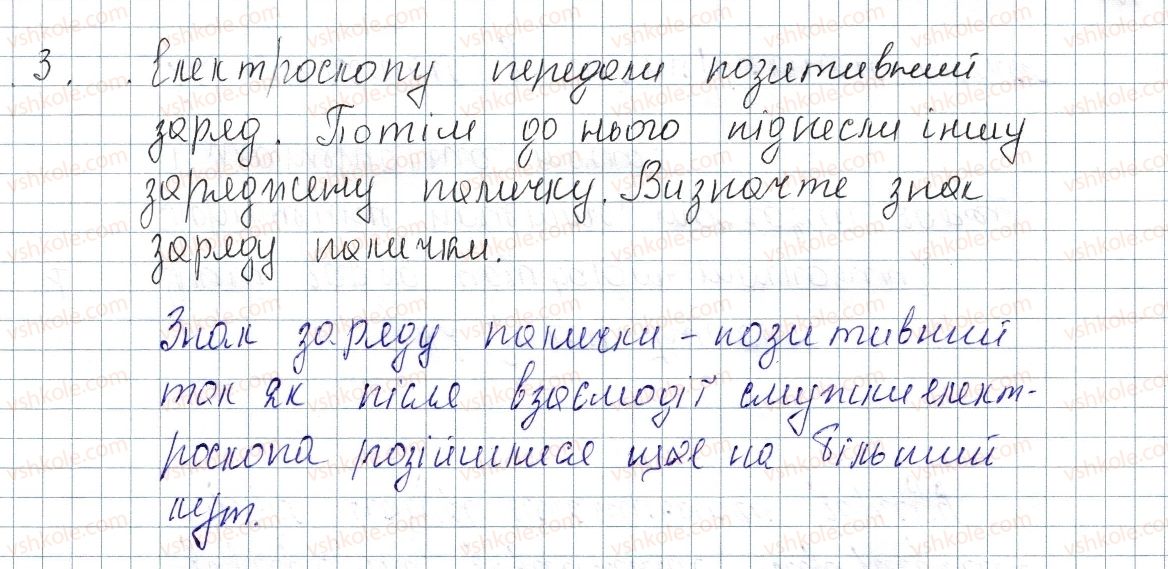 3. Електроскопу передали позитивний
заряд. Потім до нього піднесли іншу
заряджену паличку. Визначте знак
заряду палички.
Знак заряду палички - позитивний
так як після взаємодії смужки елект-
роскопа розійшлися ще на більший
кут.
vshkole.com